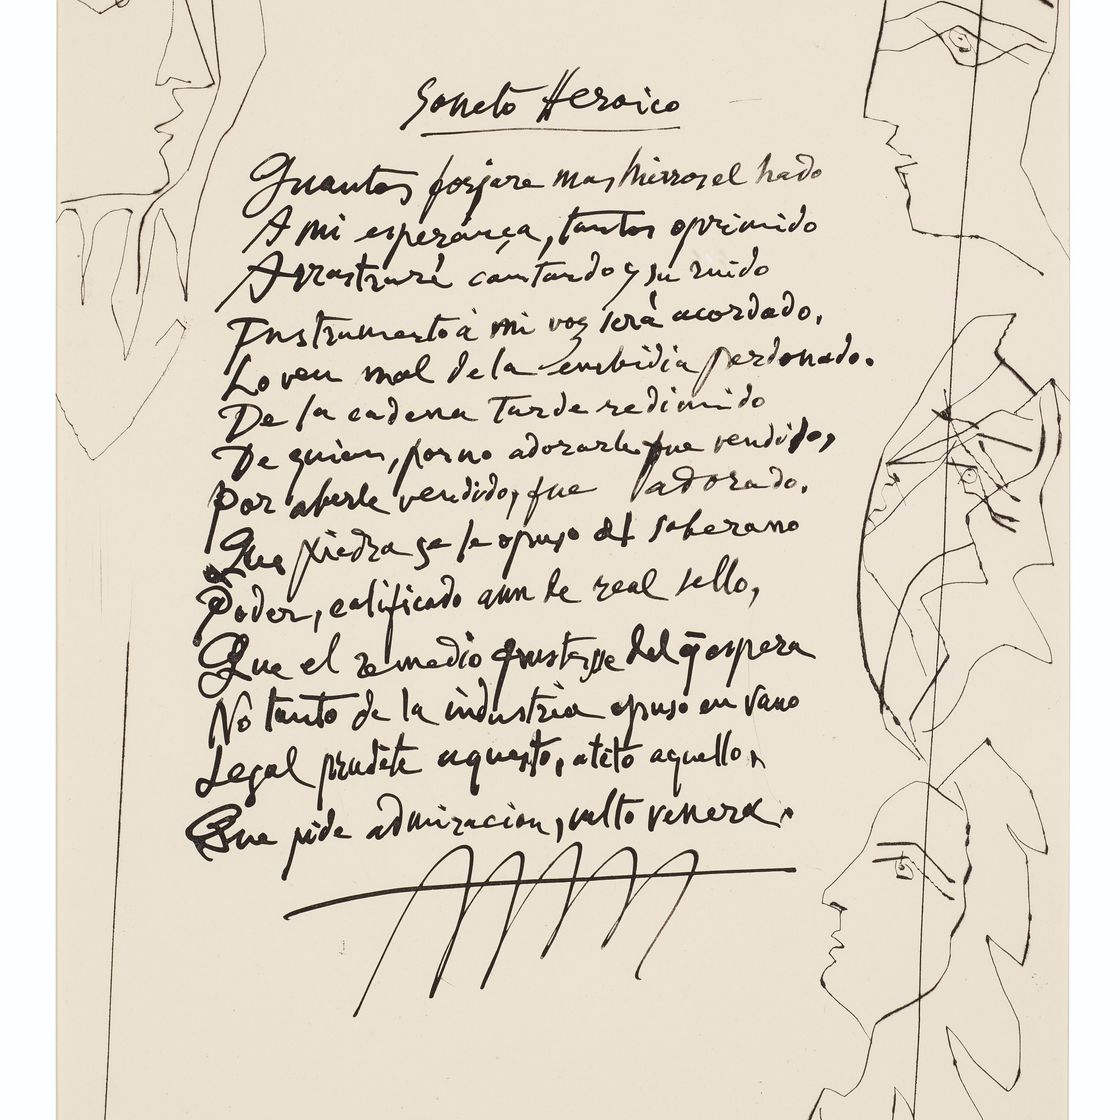 Soneto Heroico
Quantos forjare mas hierros el hado
A mi esperança, tantos oprimido
Arrastraré cantando y su ruido
Instrumento à mi voz serà acordado.
Lo ven mal de la embidia perdonado.
De la cadena tarde redimido
De quien, por no adorarle fue vendido,
Por aberle vendido, fue adorado.
Que piedra se le opuso al soberano
Poder, calificado aun de real sello,
Que el remedio frustasse del q̄ espera
No tanto de la industria opuso en vano
Legal prudēte aquesto, atēto aquello,
Que pide admiracion, culto venera.